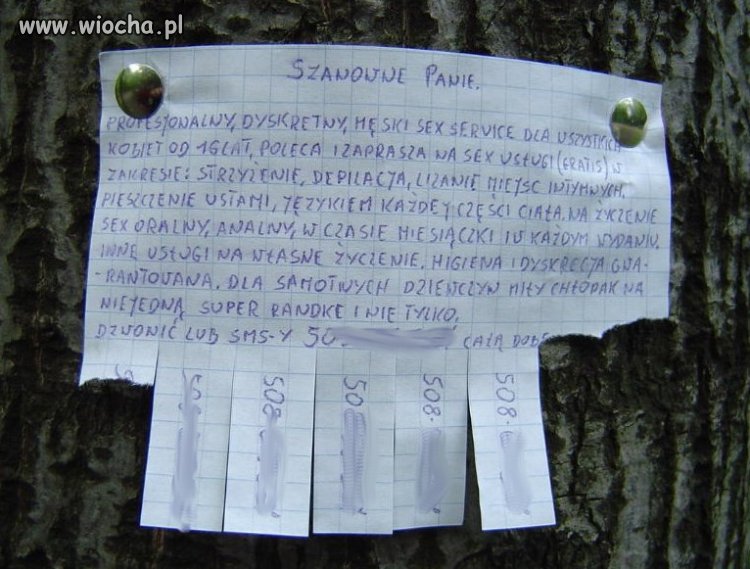 www.wiocha.pl
SZANOWNE PANIE.
PROFESJONALNY, DYSKRETNY, MĘSKI SEX SERVICE DLA WSZYSTKICH
KOBIET OD 16 LAT, POLECA I ZAPRASZA NA SEX USŁUGI (GRATIS) W
ZAKRESIE: STRZYŻENIE, DEPILACJA, LIZANIE MIEJSC INTYMNYCH,
PIESZCZENIE USTAMI, JĘZYKIEM KAŻDEJ CZĘŚCI CIAŁA, NA ŻYCZENIE
SEX ORALNY, ANALNY, W CZASIE MIESIĄCZKI I W KAŻDYM WYDANIU,
INNE USŁUGI NA WŁASNE ŻYCZENIE. HIGIENA I DYSKRECJA GWA-
-RANTOWANA. DLA SAMOTNYCH DZIEWCZYN MIŁY CHŁOPAK NA
NIEJEDNĄ SUPER RANDKE I NIE TYLKO.
DZWONIĆ LUB SMS-Y 50 CAŁĄ DOBĘ
5
50
508
50
508
508